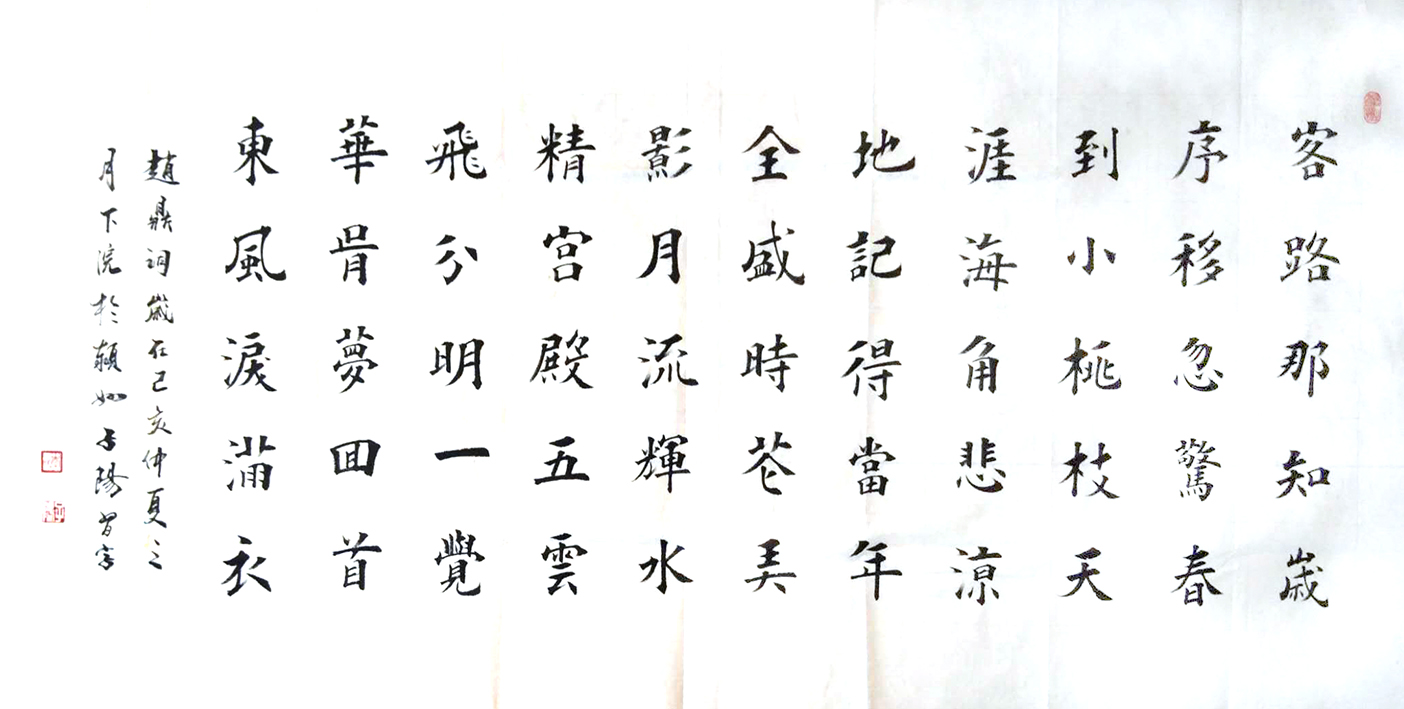 客路那知歲
序移忽驚春
到小桃枝天
涯海角悲涼
地記得當年
全盛時花弄
影月流輝水
精宮殿五雲
飛分明一覺
華胥夢囬首
東風淚滿衣
趙鼎詞歲在己亥仲夏之
月下浣於